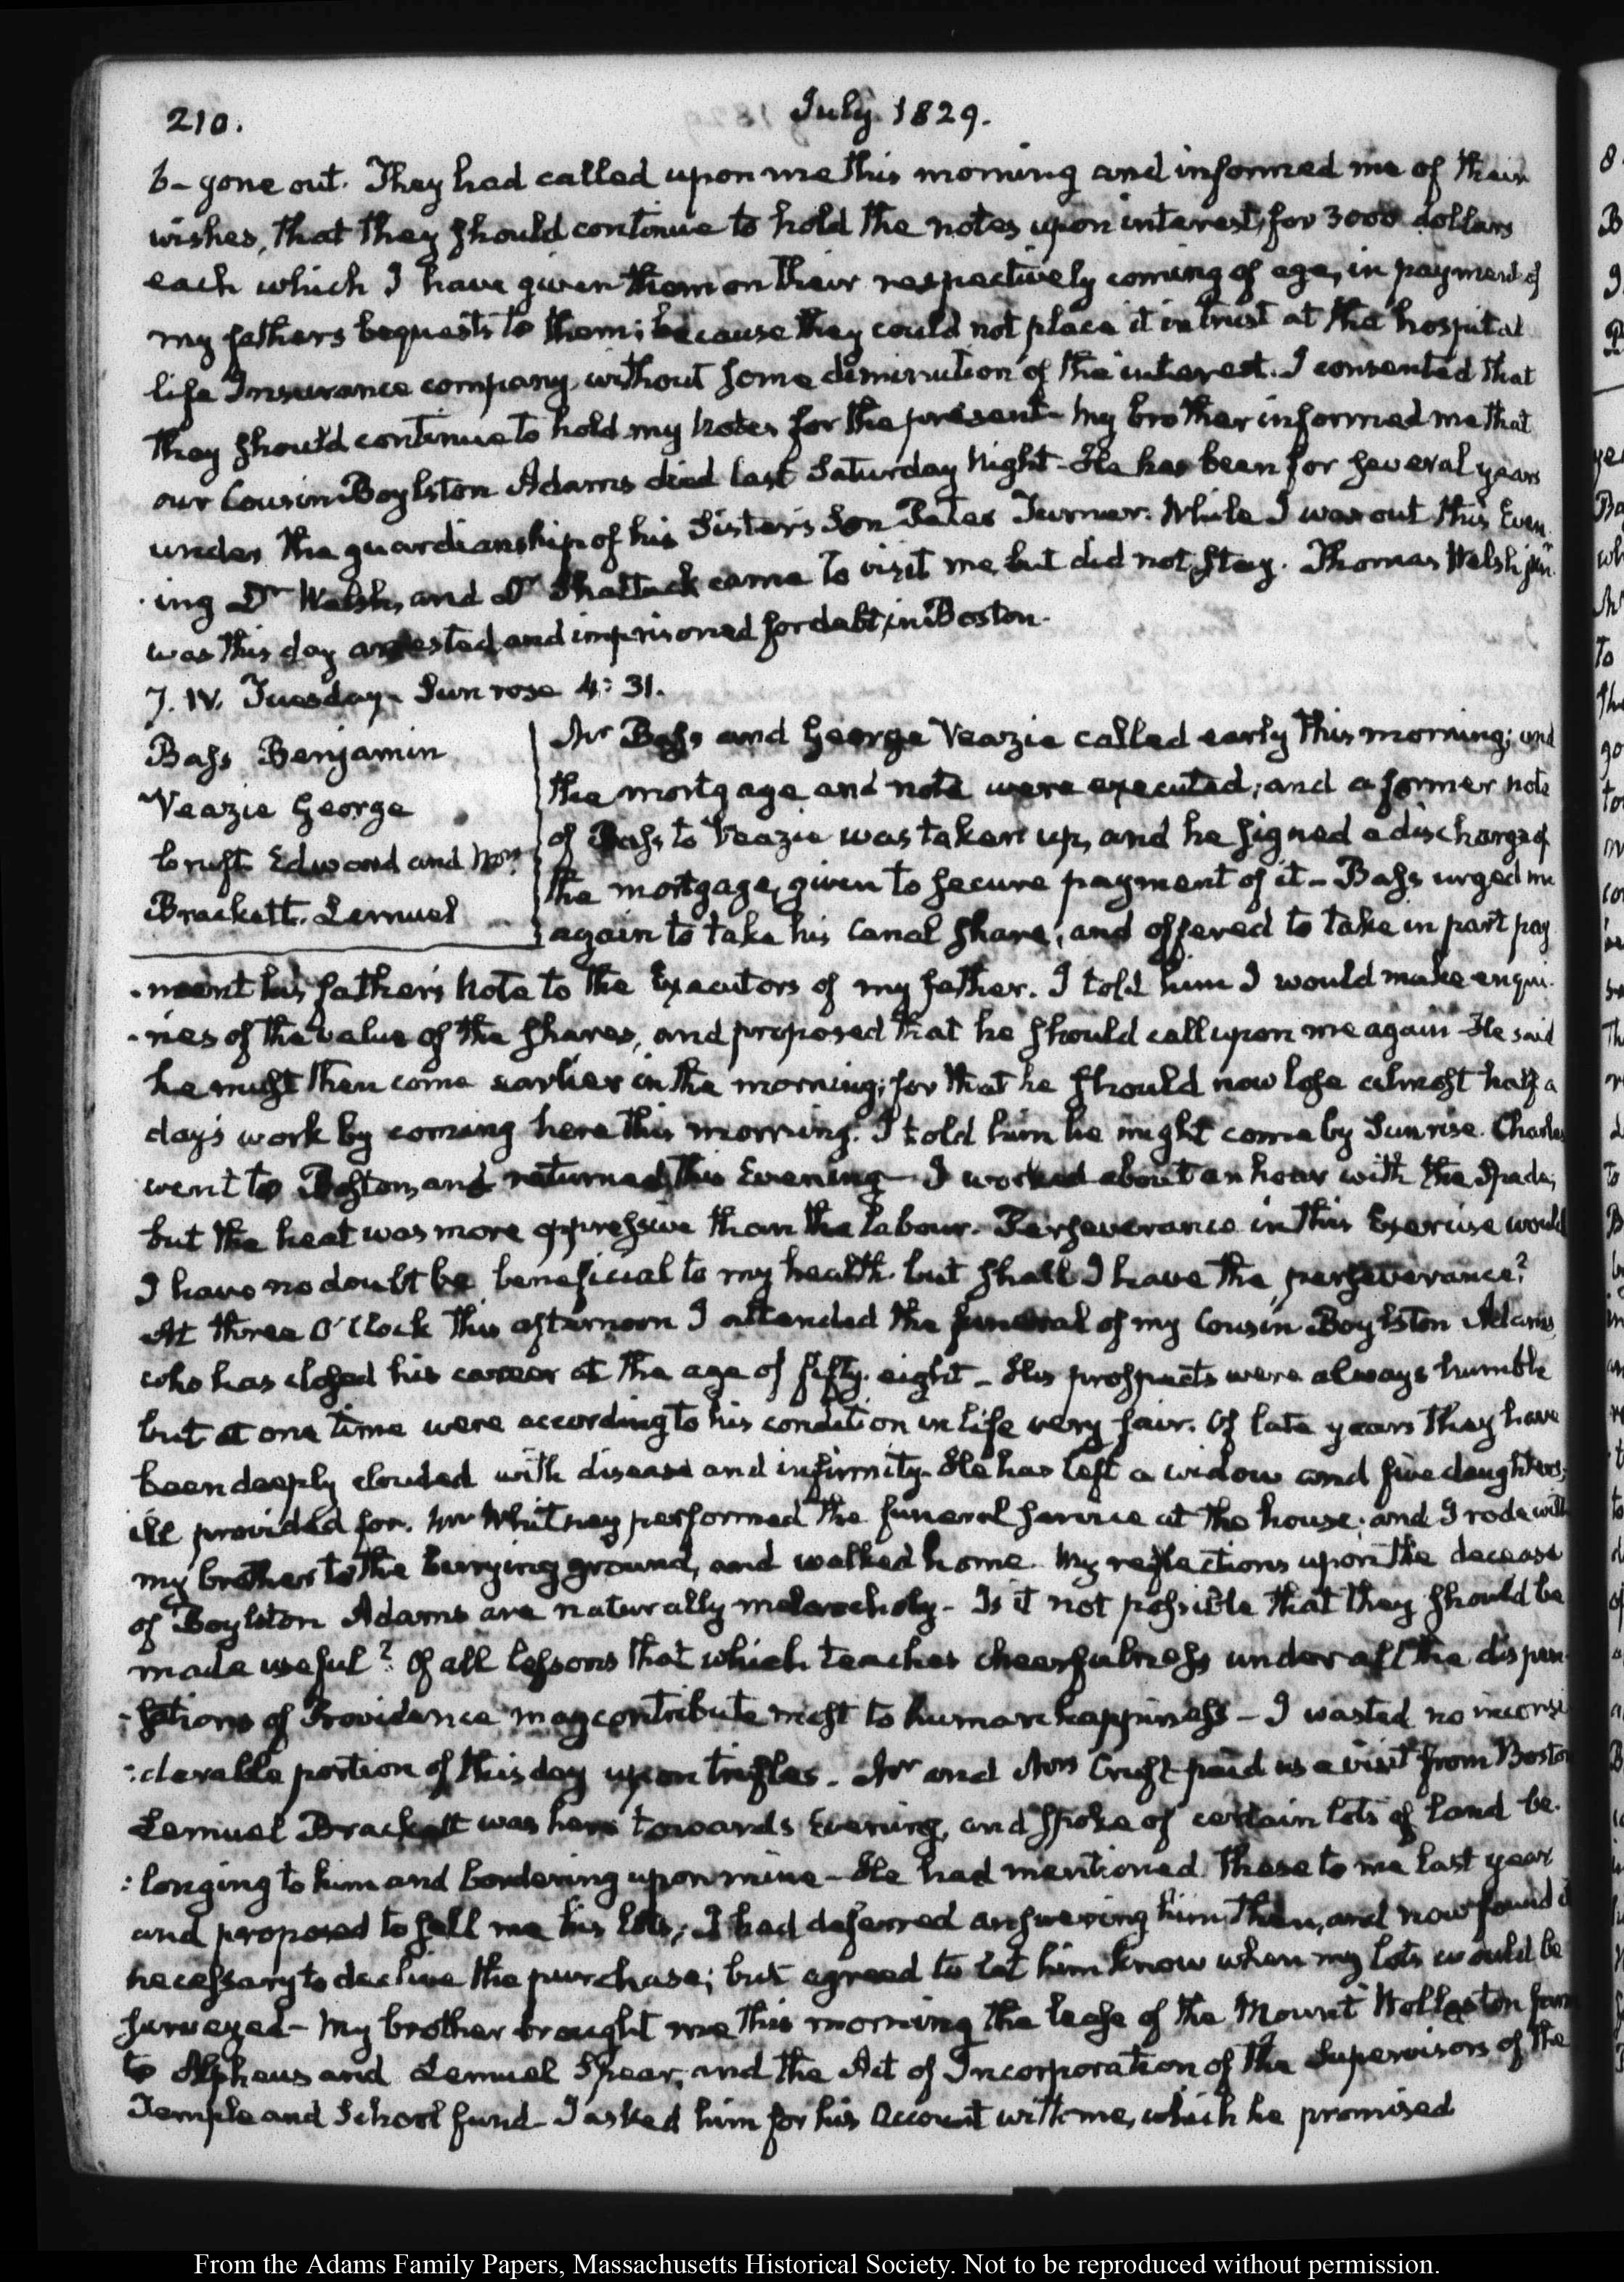 210.
July 1829.
6 - gone out. They had called upon me this morning and informed me of their
wishes, that they should continue to hold the notes upon interest, for 3000 dollars
each which I have given them on their respectively coming of age, in payment of
my fathers bequests to them; because they could not place it in trust at the hospital
life Insurance company, without some diminution of the interest. I consented that
they should continue to hold my notes for the present - My brother informed me that
our Cousin Boylston Adams died last Saturday Night - He has been for several years
under the guardianship of his Sister's Son Bates Turner. While I was out this Even
-ing Dr Welsh, and Dr Shattuck came to visit me, but did not stay. Thomas Welsh junr.
was this day arrested and imprisoned for debt, in Boston.
7. IV. Tuesday. Sun rose 4:31.
Bass Benjamin
Veazie George
Cruft. Edward and Mrs.
Brackett. Lemuel
Mr Bass and George Veazie called early this morning; and
the mortgage and note were executed; and a former note
of Bass to Veazie was taken up, and he signed a discharge of
the mortgage, given to secure payment of it - Bass urged me
again to take his Canal share, and offered to take in part pay
-ment his father's Note to the Executors of my father. I told him I would make enqui-
-ries of the value of the shares, and proposed that he should call upon me again - He said
he must then come earlier in the morning; for that he should now lose almost half a
day's work by coming here this morning. I told him he might come by Sunrise. Charles
went to Boston, and returned this Evening - I worked about an hour with the Spade;
but the heat was more oppressive than the labour. Perseverance in this Exercise would
I have no doubt be beneficial to my health. but shall I have the perseverance?
At three O'Clock this afternoon I attended the funeral of my Cousin Boylston Adams,
who has closed his career at the age of fifty-eight - His prospects were always humble
but at one time were according to his condition in life very fair. Of late years they have
been deeply clouded with disease and infirmity. He has left a widow and five daughters,
ill provided for. Mr Whitney performed the funeral service at the house; and I rode with
my brother to the burying ground, and walked home. My reflections upon the decease
of Boylston Adams are naturally melancholy - Is it not possible that they should be
made useful? Of all lessons that which teaches cheerfulness under all the dispen
-sations of Providence may contribute most to human happiness - I wasted no inconsi
-derable portion of this day upon trifles. Mr and Mrs Cruft paid us a visit from Boston
Lemuel Brackett was here towards Evening, and spoke of certain lots of land be-
-longing to him and bordering upon mine - He had mentioned these to me last year
and proposed to sell me his lots; I had deferred answering him then, and now found it
necessary to decline the purchase; but agreed to let him know when my lots would be
surveyed - My brother brought me this morning the lease of the Mount Wollaston farm
to Alpheus and Lemuel Spear, and the Act of Incorporation of the Supervisors of the
Temple and School fund - I asked him for his account with me, which he promised
From the Adams Family Papers, Massachusetts Historical Society. Not to be reproduced without permission.